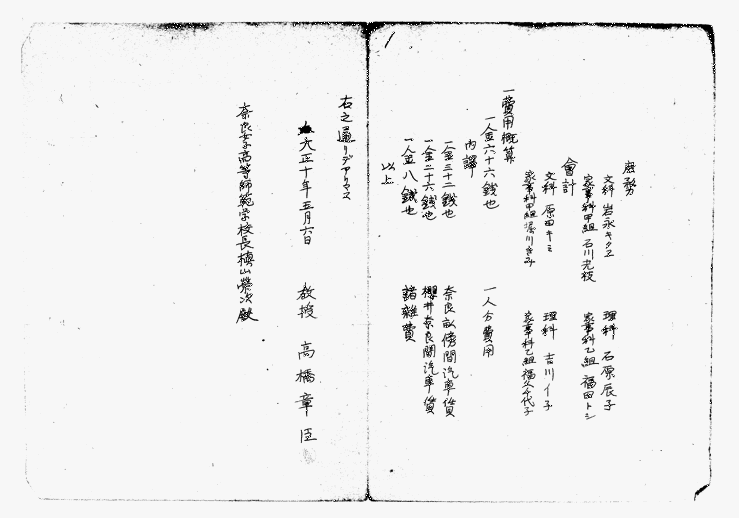 庶務
文科 岩永キクヱ 理科 石原辰子
家事科甲組 石川光枝 家事科乙組 福田トシ
會計
文科 原田キミ 理科 吉川イ子
家事科甲組 川きみ 家事科乙組 福久千代子
一費用概算
一人金六十六銭也 一人分費用
内譯
一金三十二銭也 奈良畝傍間汽車賃
一金二十六銭也 櫻井奈良間汽車賃
一人金八銭也 諸雑費
以上
右之通リデアリマス
大正十年五月六日 教授 高橋章臣
奈良女子高等師範学校長槙山榮次殿